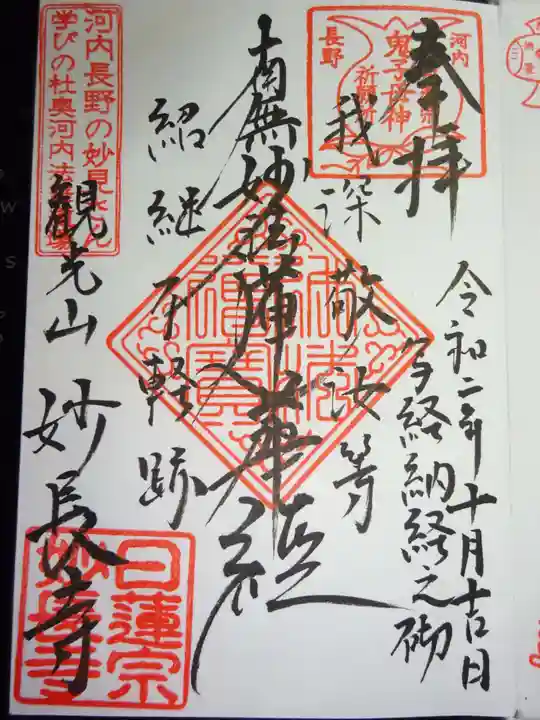 奉拝
令和二年十月吉日
写経納経之砌
河内
長野
鬼子母神
祈願所
我深敬汝等
南無妙法蓮華経
不軽跡
紹継
河内長野の妙見さん
学びの杜奥河内法
観光山 妙長寺
日蓮宗
妙長寺